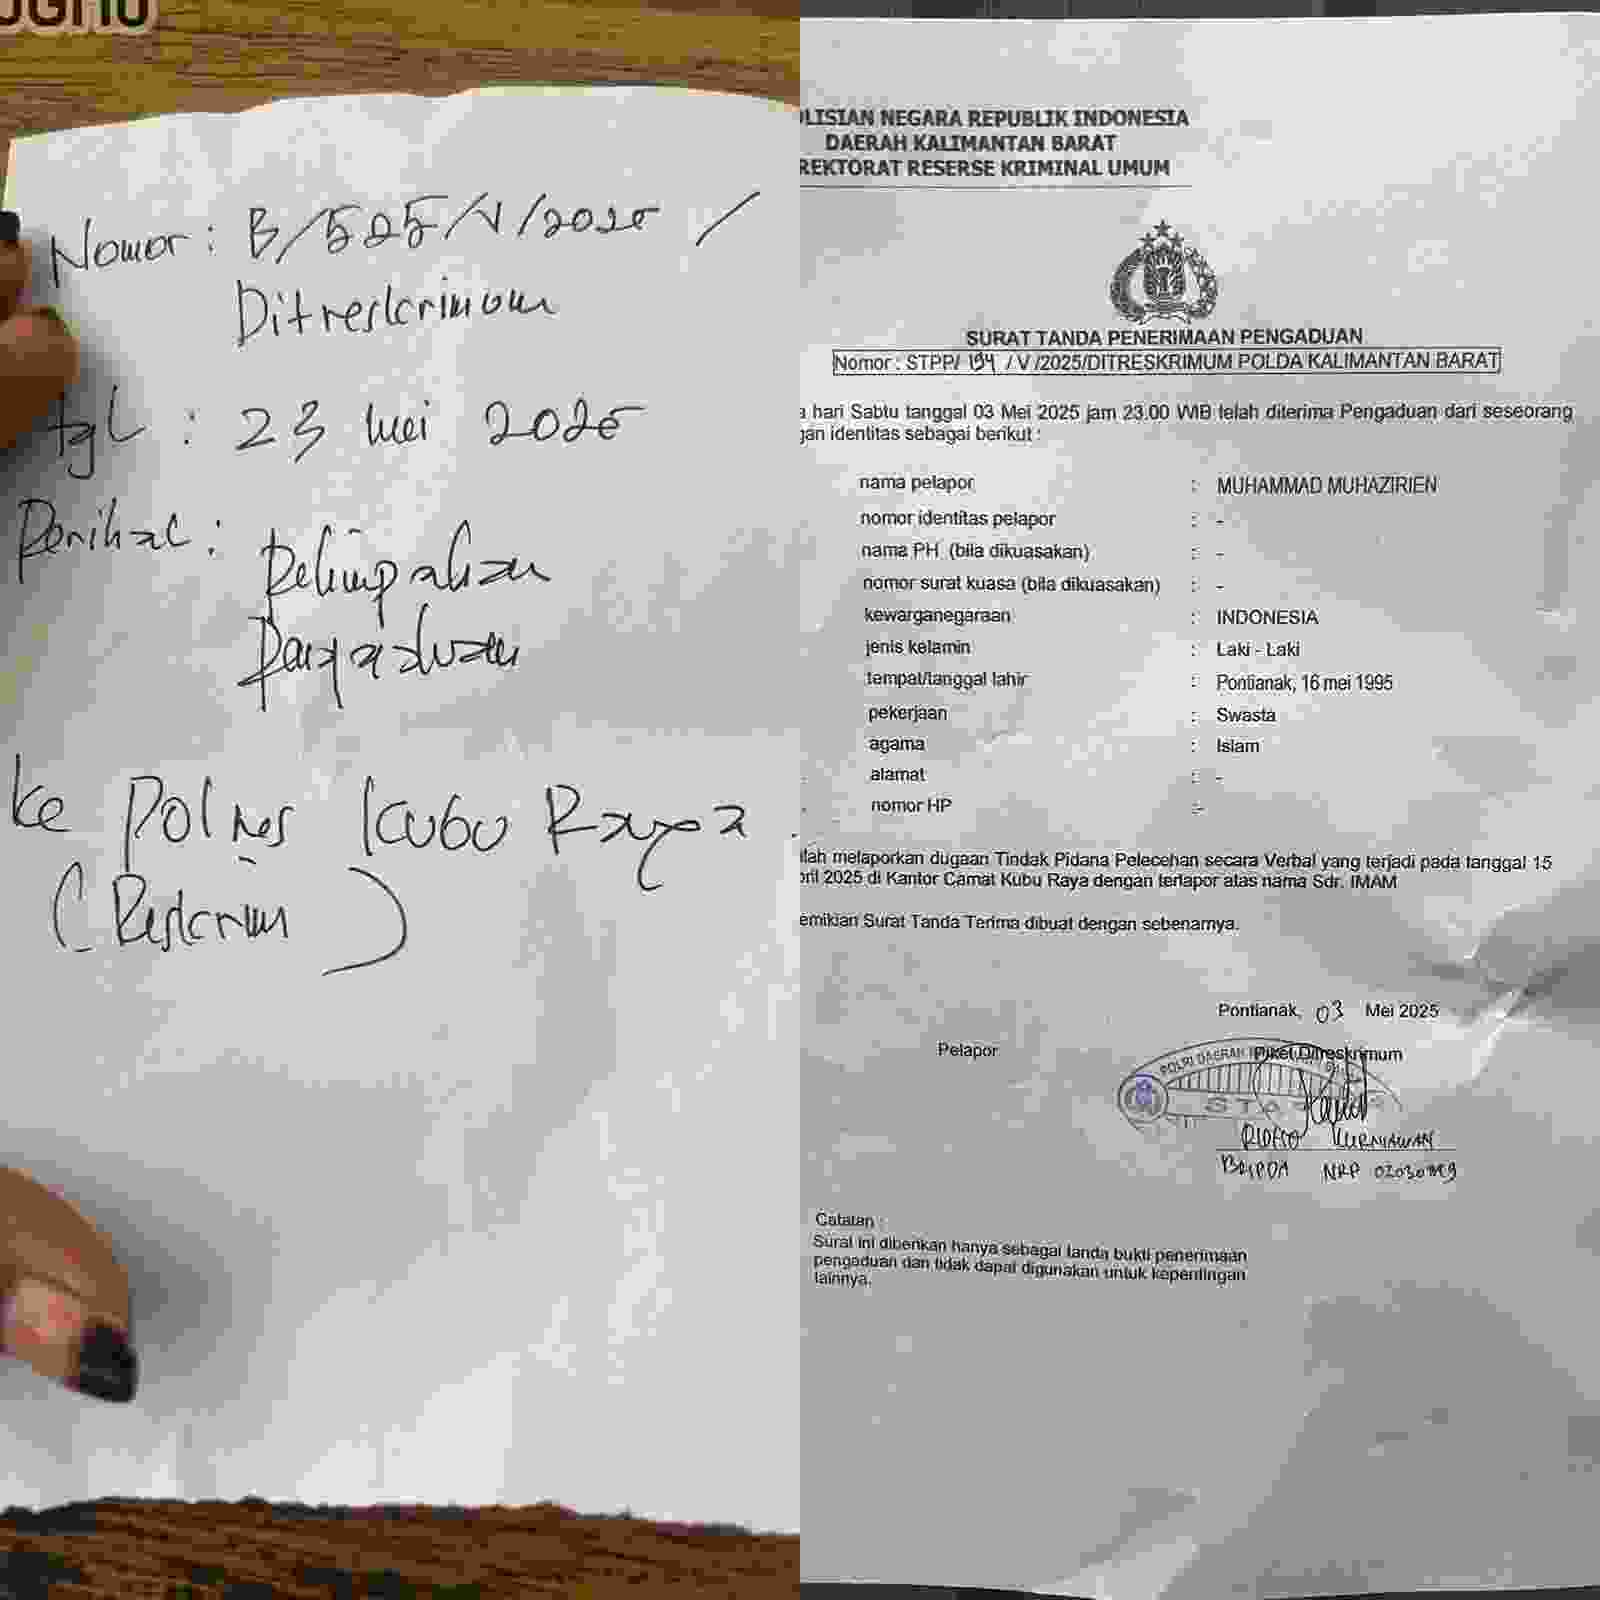 Nomor : B/525/V/2025 /
Ditreskrimum
tgl : 23 Mei 2025
Perihal : Pelimpahan
Pengaduan
ke Polres Kubu Raya.
(Reskrim)
LISIAN NEGARA REPUBLIK INDONESIA
DAERAH KALIMANTAN BARAT
REKTORAT RESERSE KRIMINAL UMUM
SURAT TANDA PENERIMAAN PENGADUAN
Nomor : STPP/ 194 / V /2025/DITRESKRIMUM POLDA KALIMANTAN BARAT
a hari Sabtu tanggal 03 Mei 2025 jam 23.00 WIB telah diterima Pengaduan dari seseorang
gan identitas sebagai berikut :
nama pelapor : MUHAMMAD MUHAZIRIEN
nomor identitas pelapor : -
nama PH (bila dikuasakan) : -
nomor surat kuasa (bila dikuasakan) : -
kewarganegaraan : INDONESIA
jenis kelamin : Laki - Laki
tempat/tanggal lahir : Pontianak, 16 mei 1995
pekerjaan : Swasta
agama : Islam
alamat : -
nomor HP :-
lah melaporkan dugaan Tindak Pidana Pelecehan secara Verbal yang terjadi pada tanggal 15
pril 2025 di Kantor Camat Kubu Raya dengan terlapor atas nama Sdr. IMAM
emikian Surat Tanda Terima dibuat dengan sebenarnya.
Pontianak, 03 Mei 2025
Pelapor
Piket Ditreskrimum
POLRI DAERAH
KURNIAWAN
BRIPDA NRP
Catatan :
Surat ini diberikan hanya sebagai tanda bukti penerimaan
pengaduan dan tidak dapat digunakan untuk kepentingan
lainnya.